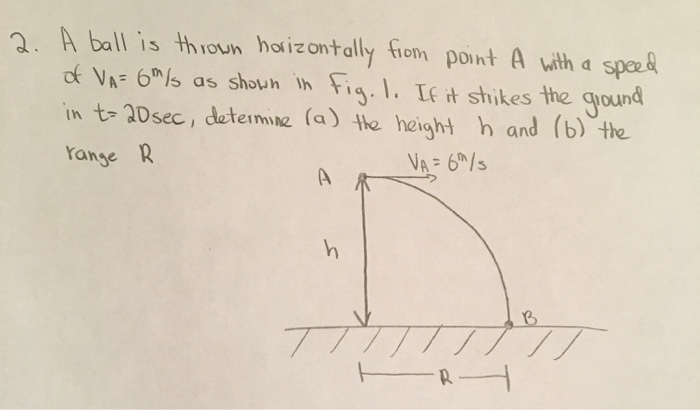 2. A ball is thrown horizontally from point A with a speed
of VA= 6m/s as shown in Fig. 1. If it strikes the ground
in t= 20sec, determine (a) the height h and (b) the
range R
VA = 6m/s
A
h
B
R